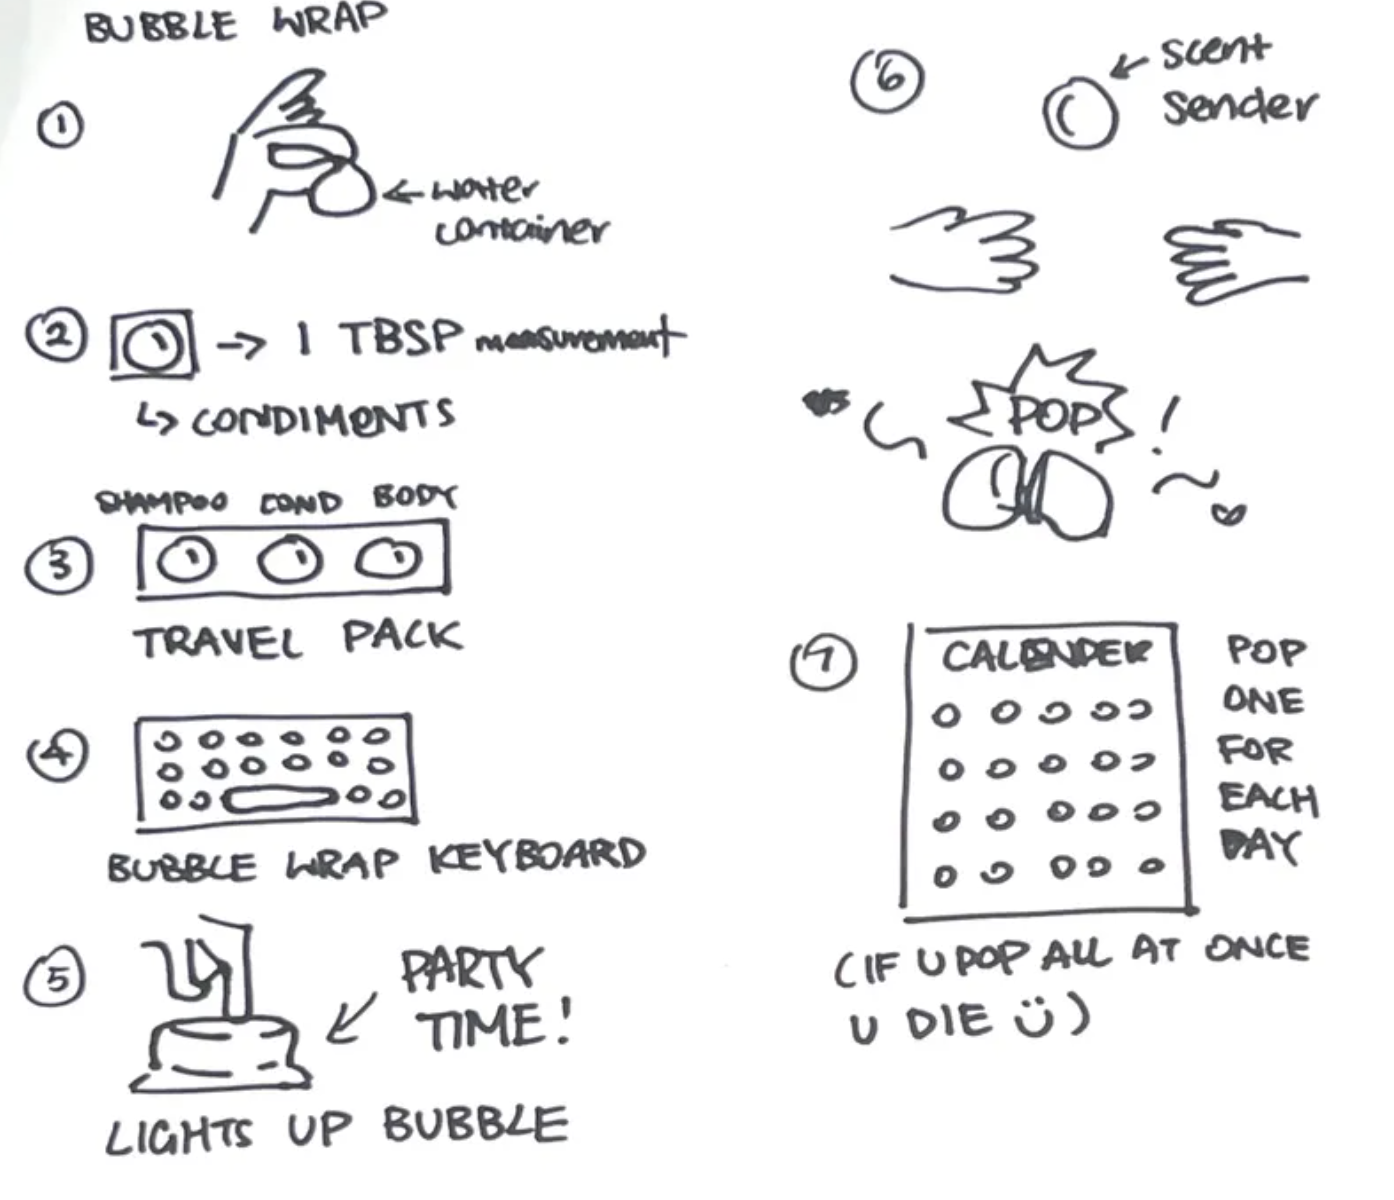 BUBBLE WRAP
①
← water
container
② → 1 TBSP measurement
↳ CONDIMENTS
SHAMPOO COND BODY
③
TRAVEL PACK
④
BUBBLE WRAP KEYBOARD
⑤
PARTY
TIME!
LIGHTS UP BUBBLE
⑥
← scent
sender
POP!
⑦
CALENDER
POP
ONE
FOR
EACH
DAY
(IF U POP ALL AT ONCE
U DIE Ü)